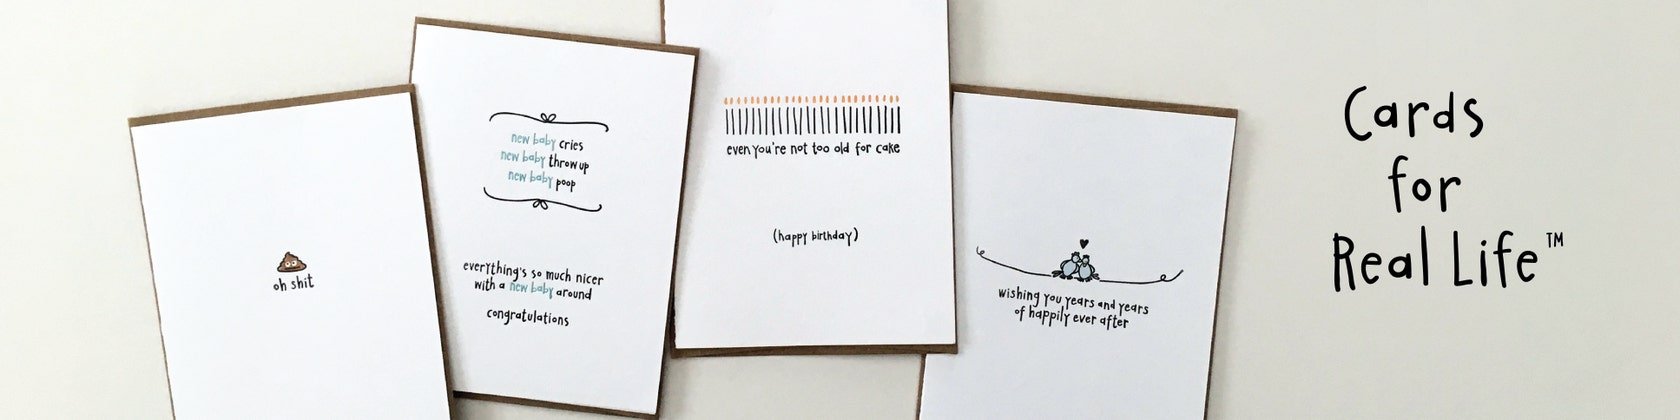 oh shit
new baby cries
new baby throw up
new baby poop
everything's so much nicer
with a new baby around
congratulations
even you're not too old for cake
(happy birthday)
wishing you years and years
of happily ever after
Cards
for
Real Life™